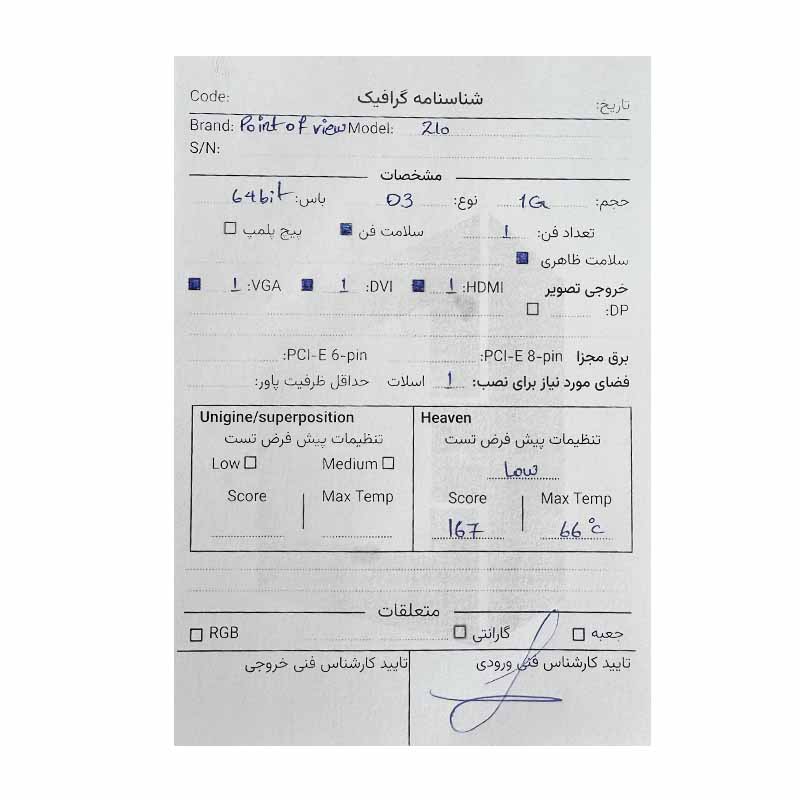 Code: شناسنامه گرافیک تاریخ:
Brand: Point of view Model: 210
S/N:
مشخصات
حجم: 1G نوع: D3 باس: 64bit
تعداد فن: 1 سلامت فن ■ پیچ پلمپ □
سلامت ظاهری ■
خروجی تصویر HDMI: 1 ■ DVI: 1 ■ VGA: 1 ■
DP: □
برق مجزا PCI-E 8-pin: PCI-E 6-pin:
فضای مورد نیاز برای نصب: 1 اسلات حداقل ظرفیت پاور:
Unigine/superposition
تنظیمات پیش فرض تست
Low □ Medium □
Score Max Temp
Heaven
تنظیمات پیش فرض تست
Low
Score Max Temp
167 66°c
متعلقات
جعبه □ گارانتی □ RGB □
تایید کارشناس فنی ورودی تایید کارشناس فنی خروجی